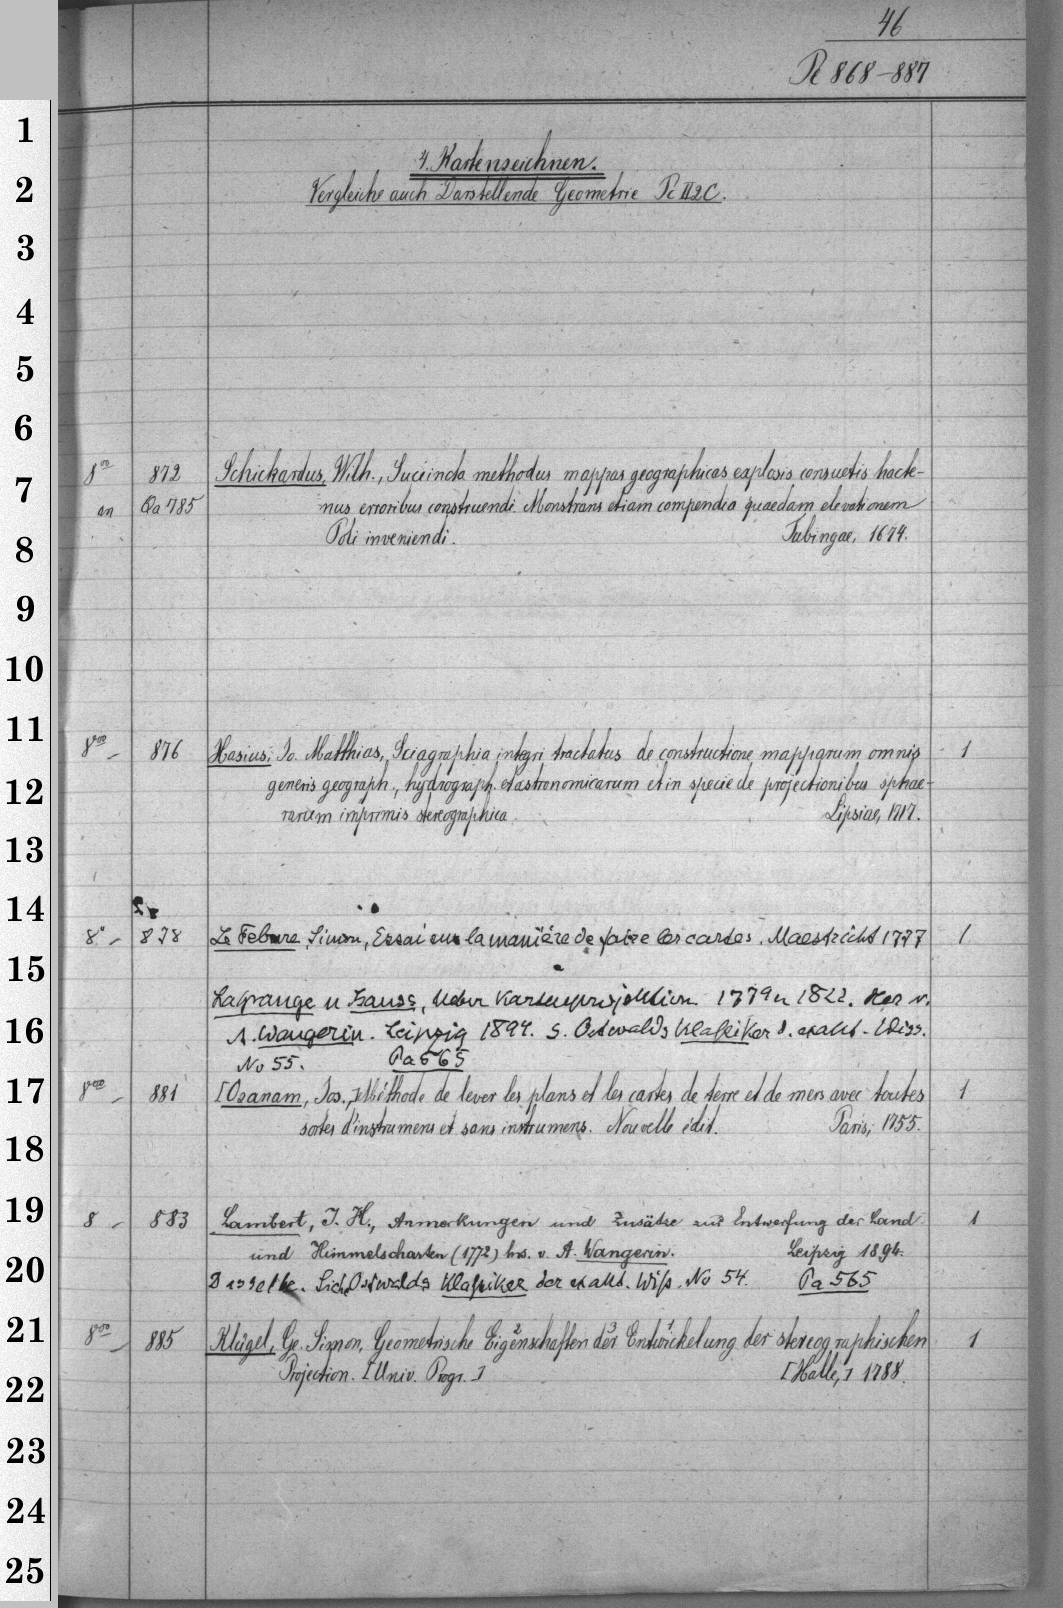 46
Pc 868-887
4. Kartenzeichnen.
Vergleiche auch Darstellende Geometrie Pc II 2 C.
8vo 872 Schickardus, Wilh., Succincta methodus mappas geographicas explosis consuetis hacte-
an Qa 785 nus erroribus construendi. Monstrans etiam compendia quaedam elevationem
Poli inveniendi. Tubingae, 1674.
8vo - 876 Hasius, Jo. Matthias, Sciagraphia integri tractatus de constructione mapparum omnis 1
generis geograph., hydrograph. et astronomicarum et in specie de projectionibus sphae-
rarum imprimis stereographica. Lipsiae, 1717.
8° - 878 Le Febure, Simon, Essai sur la manière de faire les cartes. Maestricht 1777 1
Lagrange u Gauss, Ueber Kartenprojektion 1779 u 1822. Her v.
A. Wangerin. Leipzig 1894. S. Ostwalds Klassiker d. exakt. Wiss.
No 55. Pa 565
8vo - 881 [Ozanam, Jos.,] Méthode de lever les plans et les cartes de terre et de mers avec toutes 1
sortes d'instrumens et sans instrumens. Nouvelle édit. Paris, 1755.
8 - 883 Lambert, J. H., Anmerkungen und Zusätze zur Entwerfung der Land 1
und Himmelscharten (1772) hrs. v. A. Wangerin. Leipzig 1894.
Dasselbe. Sieh Ostwalds Klassiker der exakt. Wiss. No 54. Pa 565
8vo - 885 Klügel, Ge. Simon, Geometrische Eigenschaften der Entwickelung der stereographischen 1
Projection. [Univ. Progr.] [Halle,] 1788.
1
2
3
4
5
6
7
8
9
10
11
12
13
14
15
16
17
18
19
20
21
22
23
24
25